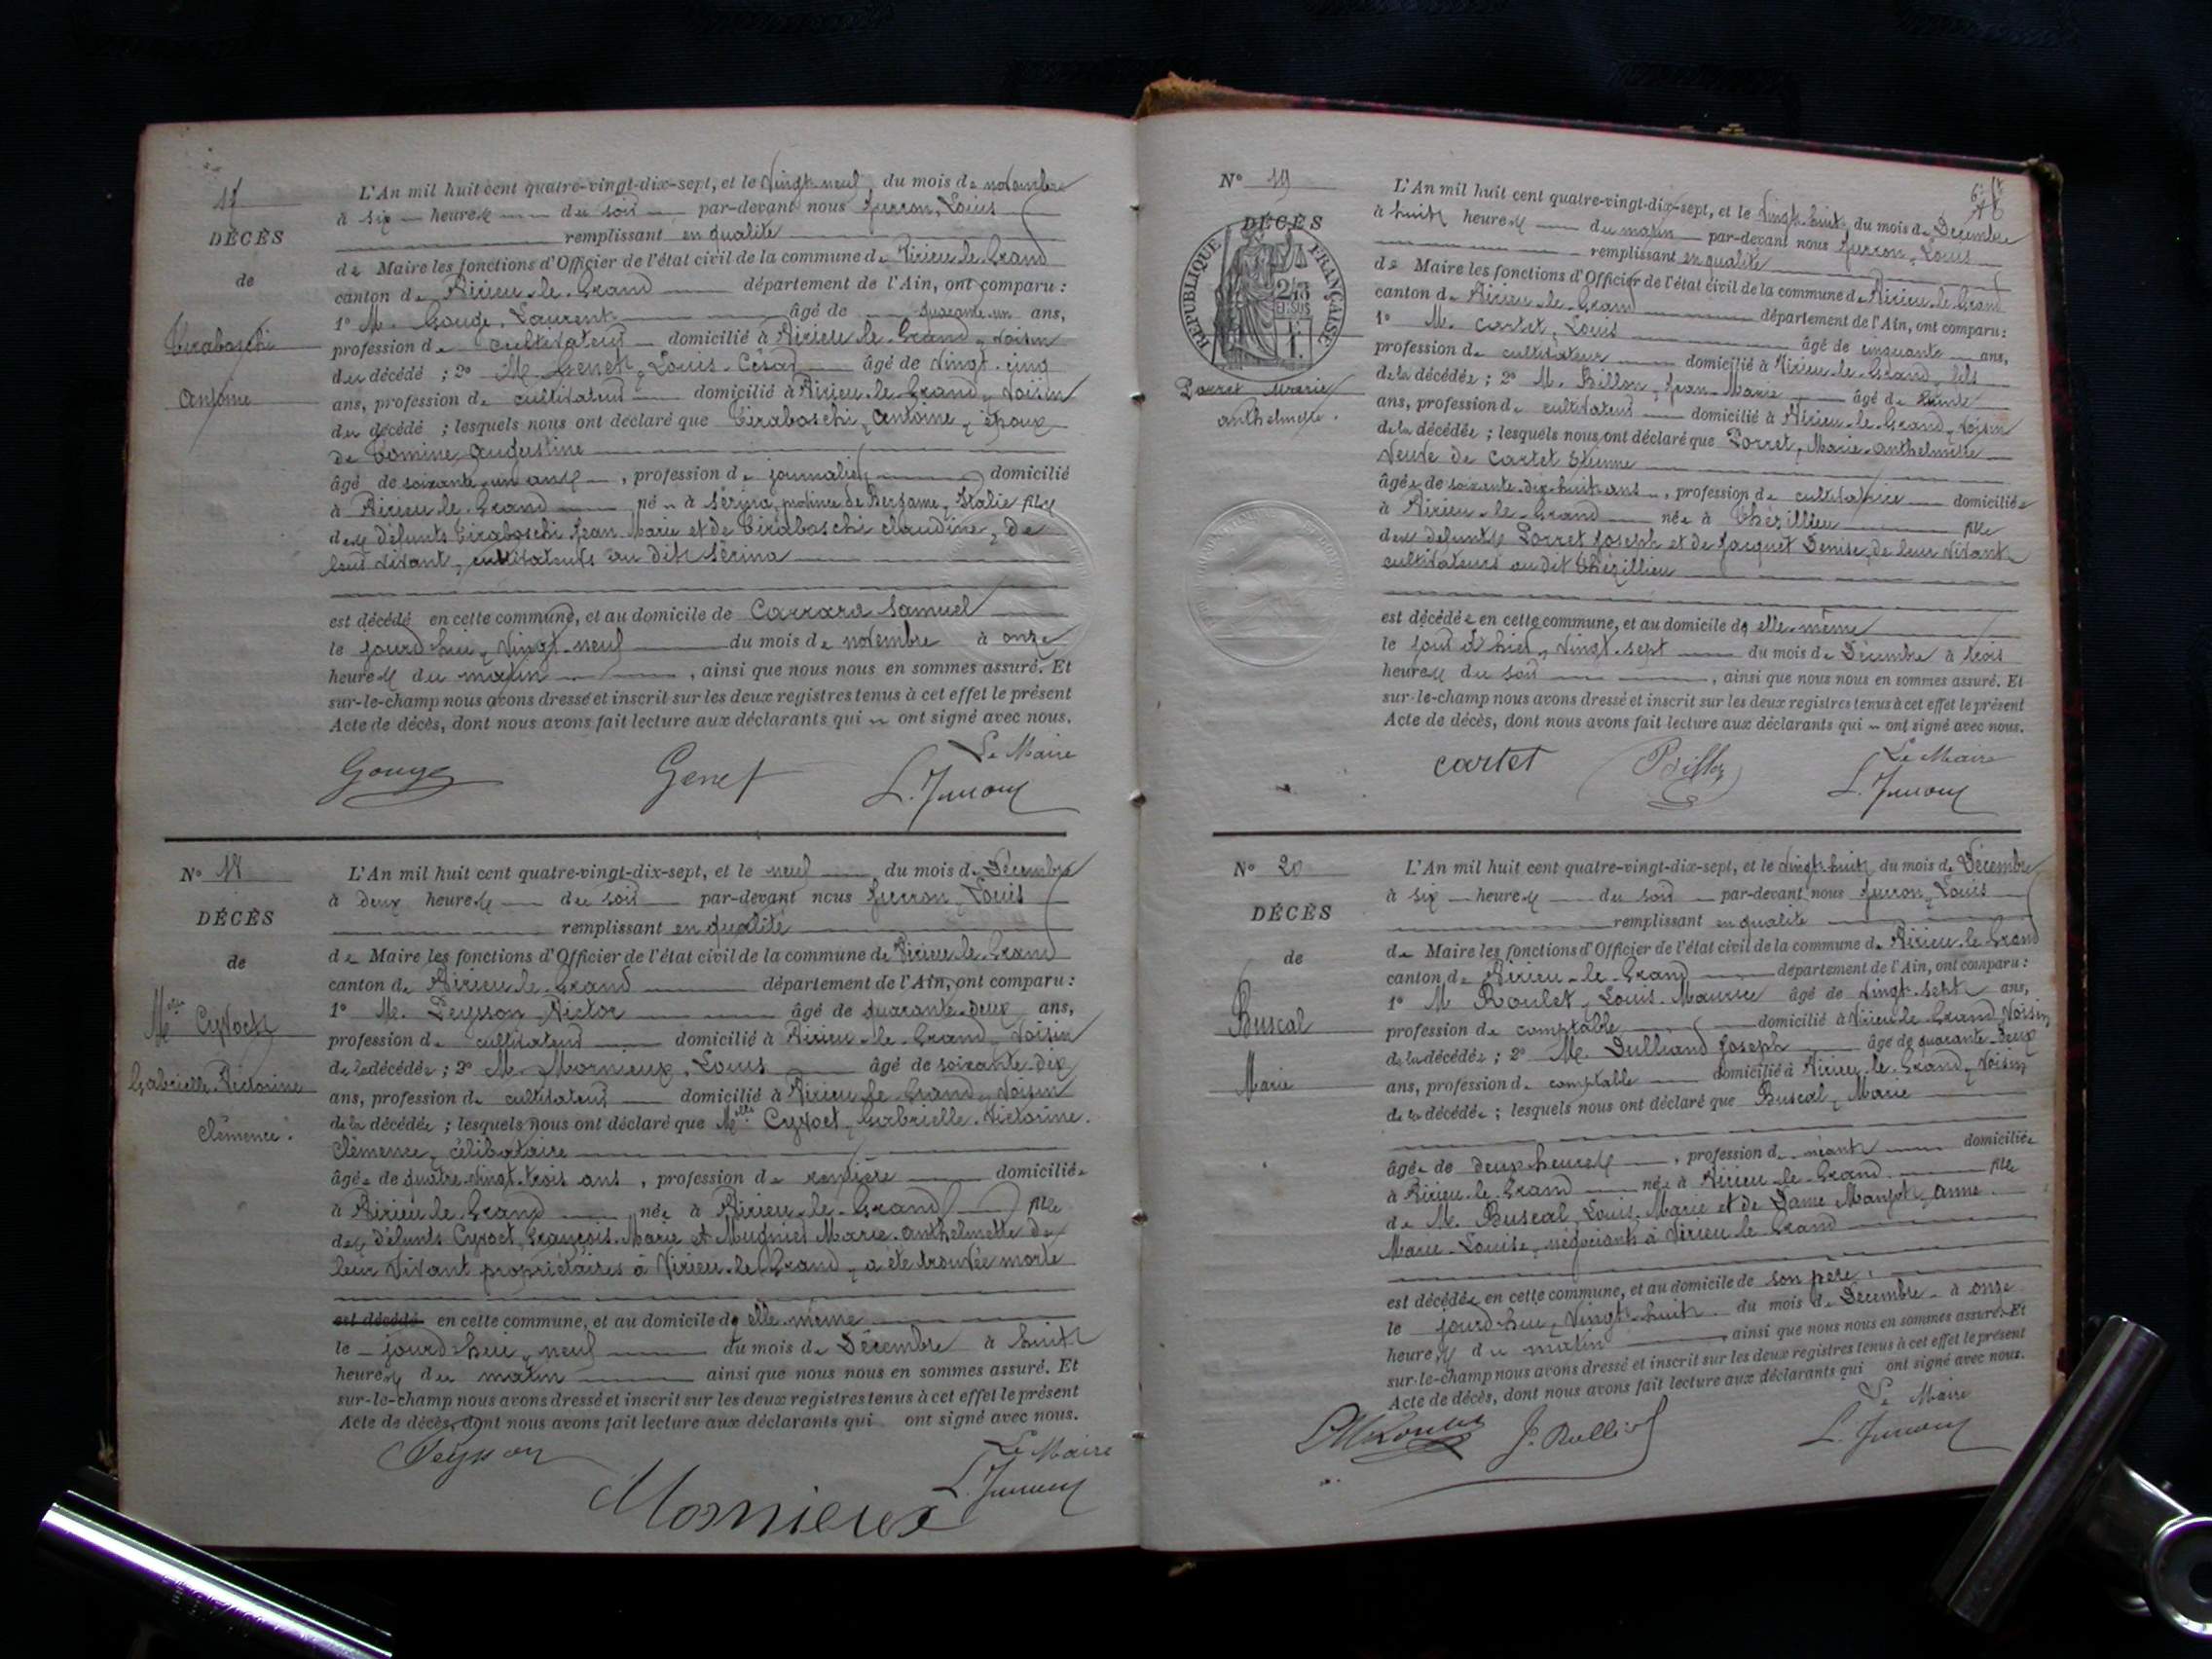 17
DÉCÈS
de
Tiraboschi
Antoine
L'An mil huit cent quatre-vingt-dix-sept, et le vingt-neuf, du mois de novembre
à six heures du soir par-devant nous Juron, Louis
remplissant en qualité
de Maire les fonctions d'Officier de l'état civil de la commune de Virieu-le-Grand
canton de Virieu-le-Grand département de l'Ain, ont comparu :
1° M. Gouge, Laurent âgé de quarante-un ans,
profession de cultivateur domicilié à Virieu-le-Grand, voisin
du décédé ; 2° M. Genet, Louis-César âgé de vingt-cinq
ans, profession de cultivateur domicilié à Virieu-le-Grand, voisin
du décédé ; lesquels nous ont déclaré que Tiraboschi, Antoine, époux
de Tomine, Augustine
âgé de soixante-un ans, profession de journalier domicilié
à Virieu-le-Grand né à Sérina, province de Bergame, Italie fils
des défunts Tiraboschi Jean Marie et de Tiraboschi Claudine, de
leur vivant, cultivateurs au dit Sérina
est décédé en cette commune, et au domicile de Carrara Samuel
le jourd'hui, vingt-neuf du mois de novembre à onze
heures du matin, ainsi que nous nous en sommes assuré. Et
sur-le-champ nous avons dressé et inscrit sur les deux registres tenus à cet effet le présent
Acte de décès, dont nous avons fait lecture aux déclarants qui ont signé avec nous.
Le Maire
Gouge Genet L. Juron
N° 18
DÉCÈS
de
Melle Cyvoct
Gabrielle-Victorine
Clémence.
L'An mil huit cent quatre-vingt-dix-sept, et le neuf du mois de Décembre
à deux heures du soir par-devant nous Juron, Louis
remplissant en qualité
de Maire les fonctions d'Officier de l'état civil de la commune de Virieu-le-Grand
canton de Virieu-le-Grand département de l'Ain, ont comparu :
1° M. Peysson, Victor âgé de quarante-deux ans,
profession de cultivateur domicilié à Virieu-le-Grand, voisin
de la décédée ; 2° M. Mornieux, Louis âgé de soixante-dix
ans, profession de cultivateur domicilié à Virieu-le-Grand, voisin
de la décédée ; lesquels nous ont déclaré que Melle Cyvoct, Gabrielle-Victorine.
Clémence, célibataire
âgée de quatre-vingt-trois ans, profession de rentière domiciliée
à Virieu-le-Grand née à Virieu-le-Grand fille
des défunts Cyvoct, François-Marie et Mugnier Marie-Anthelmette de
leur vivant propriétaires à Virieu-le-Grand, a été trouvée morte
est décédé en cette commune, et au domicile de elle-même
le jourd'hui, neuf du mois de Décembre à huit
heures du matin ainsi que nous nous en sommes assuré. Et
sur-le-champ nous avons dressé et inscrit sur les deux registres tenus à cet effet le présent
Acte de décès, dont nous avons fait lecture aux déclarants qui ont signé avec nous.
Le Maire
Peysson Mornieux L. Juron
N° 19
DÉCÈS
RÉPUBLIQUE FRANÇAISE
Porret Marie
Anthelmette.
L'An mil huit cent quatre-vingt-dix-sept, et le vingt-huit, du mois de Décembre
à huit heures du matin par-devant nous Juron, Louis
remplissant en qualité
de Maire les fonctions d'Officier de l'état civil de la commune de Virieu-le-Grand
canton de Virieu-le-Grand département de l'Ain, ont comparu :
1° M. Cartet, Louis âgé de cinquante ans,
profession de cultivateur domicilié à Virieu-le-Grand, fils
de la décédée ; 2° M. Billon, Jean-Marie âgé de trente
ans, profession de cultivateur domicilié à Virieu-le-Grand, voisin
de la décédée ; lesquels nous ont déclaré que Porret, Marie-Anthelmette
veuve de Cartet Etienne
âgée de soixante-dix-huit ans, profession de cultivatrice domiciliée
à Virieu-le-Grand née à Thézillieu fille
des défunts Porret Joseph et de Jacquet Denise, de leur vivant
cultivateurs au dit Thézillieu
est décédée en cette commune, et au domicile de elle-même
le jour d'hier, vingt-sept du mois de Décembre à trois
heures du soir, ainsi que nous nous en sommes assuré. Et
sur-le-champ nous avons dressé et inscrit sur les deux registres tenus à cet effet le présent
Acte de décès, dont nous avons fait lecture aux déclarants qui ont signé avec nous.
Le Maire
Cartet Billon L. Juron
N° 20
DÉCÈS
de
Buscal
Marie
L'An mil huit cent quatre-vingt-dix-sept, et le vingt-huit du mois de Décembre
à six heures du soir par-devant nous Juron, Louis
remplissant en qualité
de Maire les fonctions d'Officier de l'état civil de la commune de Virieu-le-Grand
canton de Virieu-le-Grand département de l'Ain, ont comparu :
1° M. Roulet, Louis-Maurice âgé de vingt-sept ans,
profession de comptable domicilié à Virieu-le-Grand, voisin
de la décédée ; 2° M. Dulliand Joseph âgé de quarante-deux
ans, profession de comptable domicilié à Virieu-le-Grand, voisin
de la décédée ; lesquels nous ont déclaré que Buscal, Marie
âgée de deux heures, profession de néant domiciliée
à Virieu-le-Grand née à Virieu-le-Grand fille
de M. Buscal, Louis-Marie et de Dame Anne
Marie-Louise, négociants à Virieu-le-Grand
est décédée en cette commune, et au domicile de son père,
le jourd'hui, vingt-huit du mois de Décembre à onze
heures du matin, ainsi que nous nous en sommes assuré. Et
sur-le-champ nous avons dressé et inscrit sur les deux registres tenus à cet effet le présent
Acte de décès, dont nous avons fait lecture aux déclarants qui ont signé avec nous.
Le Maire
LMRoulet J. Dulliand L. Juron